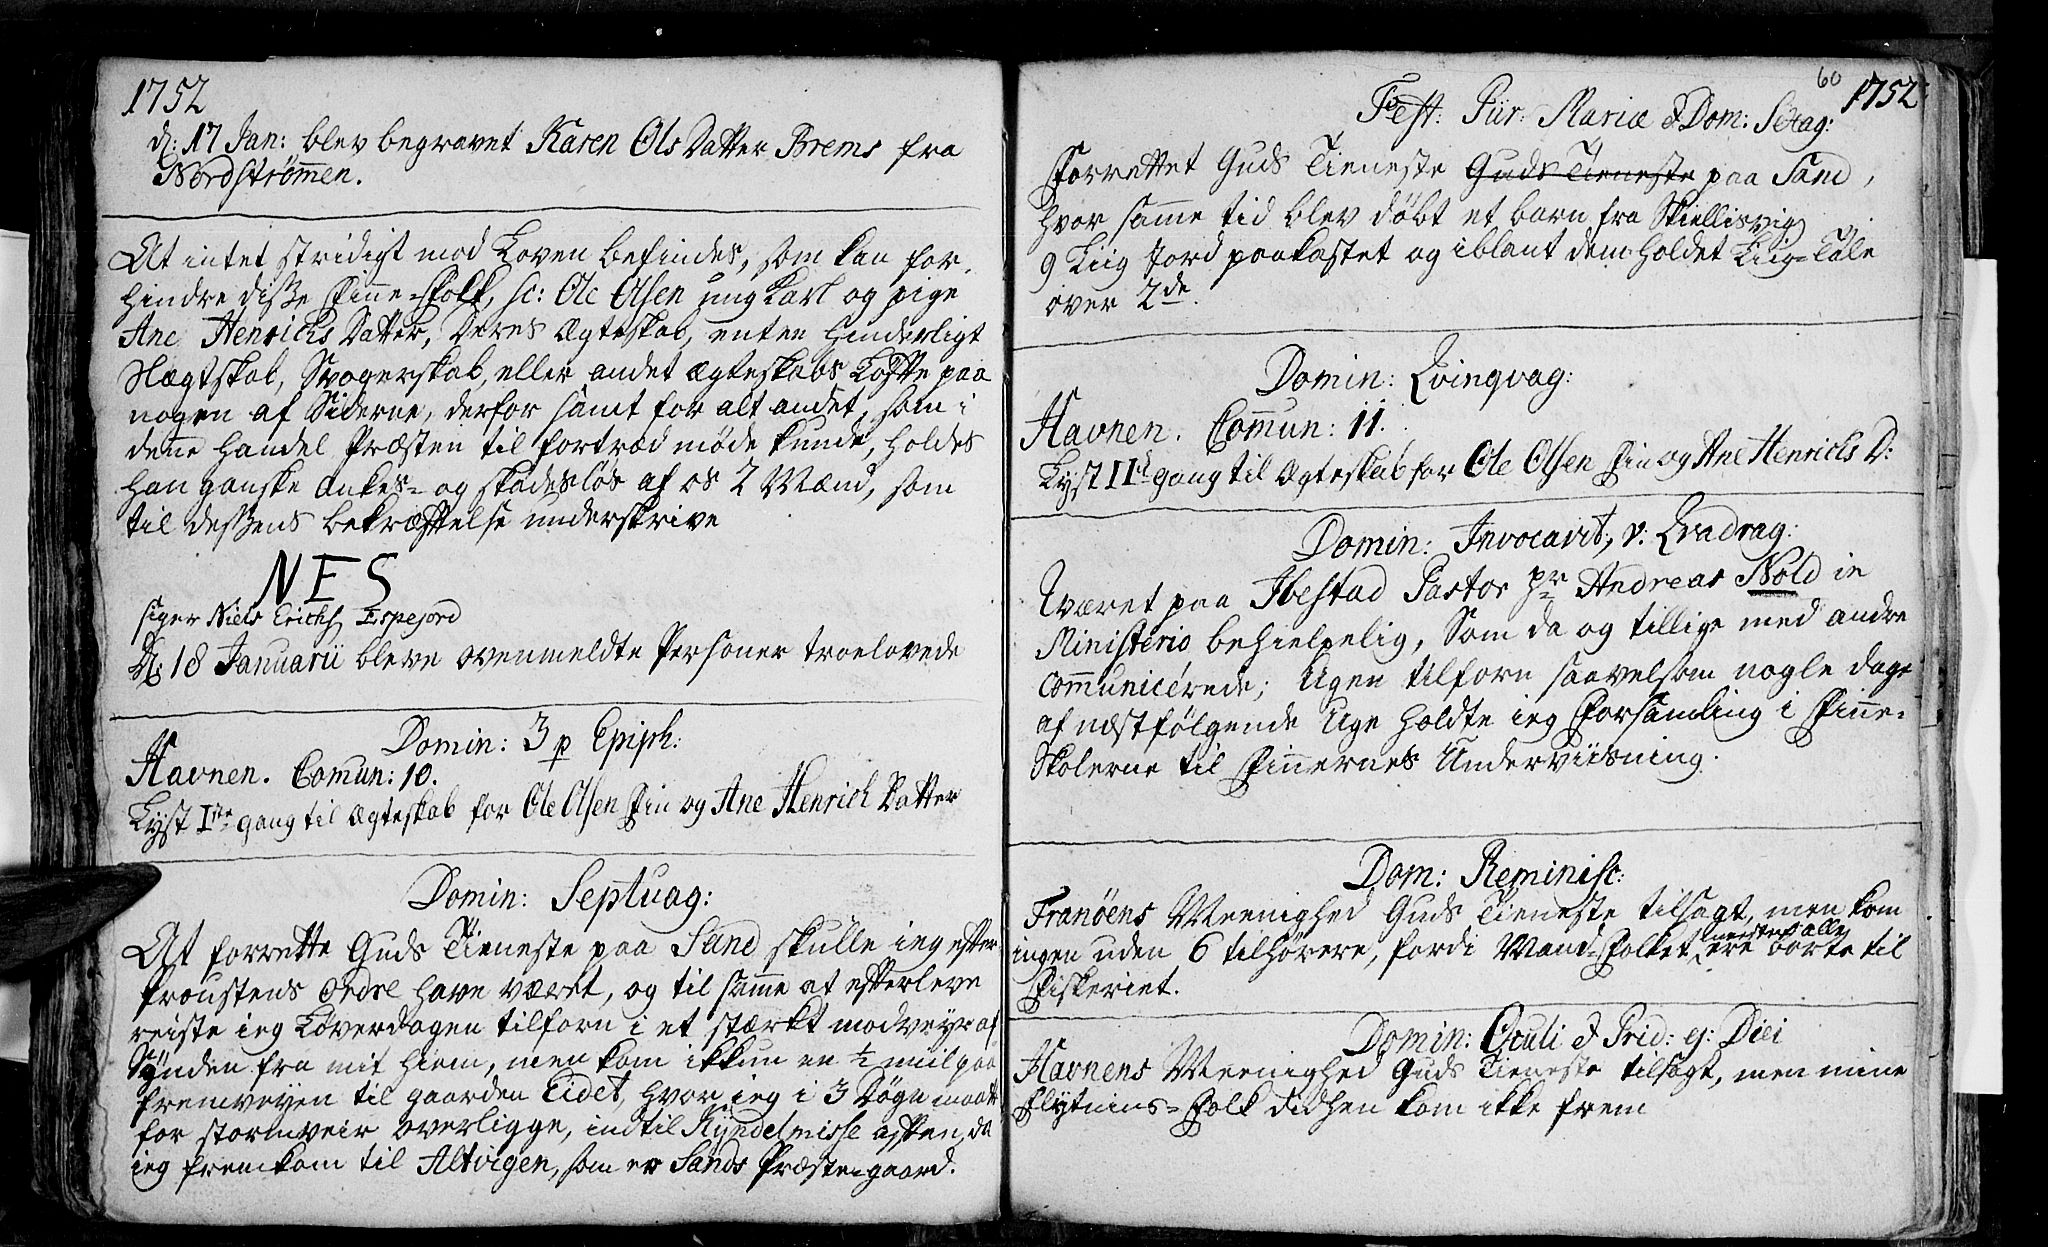 1752
d: 17 Jan: blev begravet Karen Ols Datter Brems fra
Nordstrømmen.
At intet stridigt mod Loven befindes, som kan for-
hindre diße Finne-Folk, sc: Ole Olsen ung Karl og pige
Ane Henrichs Datter, Deres Ægteskab, enten hinderligt
Slægtskab, Svogerskab, eller andet Ægteskabs Løfte paa
nogen af Siderne, derfor samt for alt andet, som i
denne handel Præsten til fortræd møde kunde, holdes
han ganske ankes- og skadesløs af os 2 Mænd, som
til deßens bekræftelse underskrive
NES
siger Niels Erichs. Espejord
D: 18 Januarii bleve ovenmeldte Personer troelovede
Domin: 3 p Epiph:
Havnen. Comun: 10.
Lyst Iste gang til Ægteskab for Ole Olsen Fin og Ane Henrich Datter
Domin: Septuag:
At forrette Guds Tieneste paa Sand skulle ieg efter
Proustens Ordre have været, og til samme at efterleve
reiste ieg Løverdagen tilforn i et stærkt modveyr af
Sønden fra mit hiem, men kom ikkun en ½ miil paa
fremveyen til gaarden Eidet, hvor ieg i 3 Døgn maatte
for stormveir overligge, indtil Kyndelmisse aften, da
ieg fremkom til Altvigen, som er Sands Præste-gaard.
60
1752
Fest: Pur: Mariæ & Dom: Sexag:
Forrettet Guds Tieneste Guds Tieneste paa Sand,
hvor samme tid blev døbt et barn fra Skiellisvig
9 Liig Jord paakastet og iblant dem holdet Liig-Tale
over 2de.
Domin: Qvinqvag:
Havnen. Commun: 11.
Lyst IId gang til Ægteskab for Ole Olsen Fin og Ane Henrichs D:
Domin: Invocavit, v: Qvadrag:
Været paa Ibestad Pastor Hr Andreas Nold in
Ministerio behielpelig, Som da og tillige med andre
communicérede; Ugen tilforn saavelsom nogle dage
af næstfølgende Uge holdte ieg Forsamling i Finne-
Skolerne til Finnernes Underviisning.
Dom: Reminisc:
Tranöens Meenighed Guds Tieneste tilsagt, men kom
ingen uden 6 tilhørere, fordi Mand-Folket meesten alle ere borte til
Fiskeriet.
Domin: Oculi & Prid: ej: Diei
Havnens Meenighed Guds Tieneste tilsagt, men mine
Flytnins-Folk didhen kom ikke frem